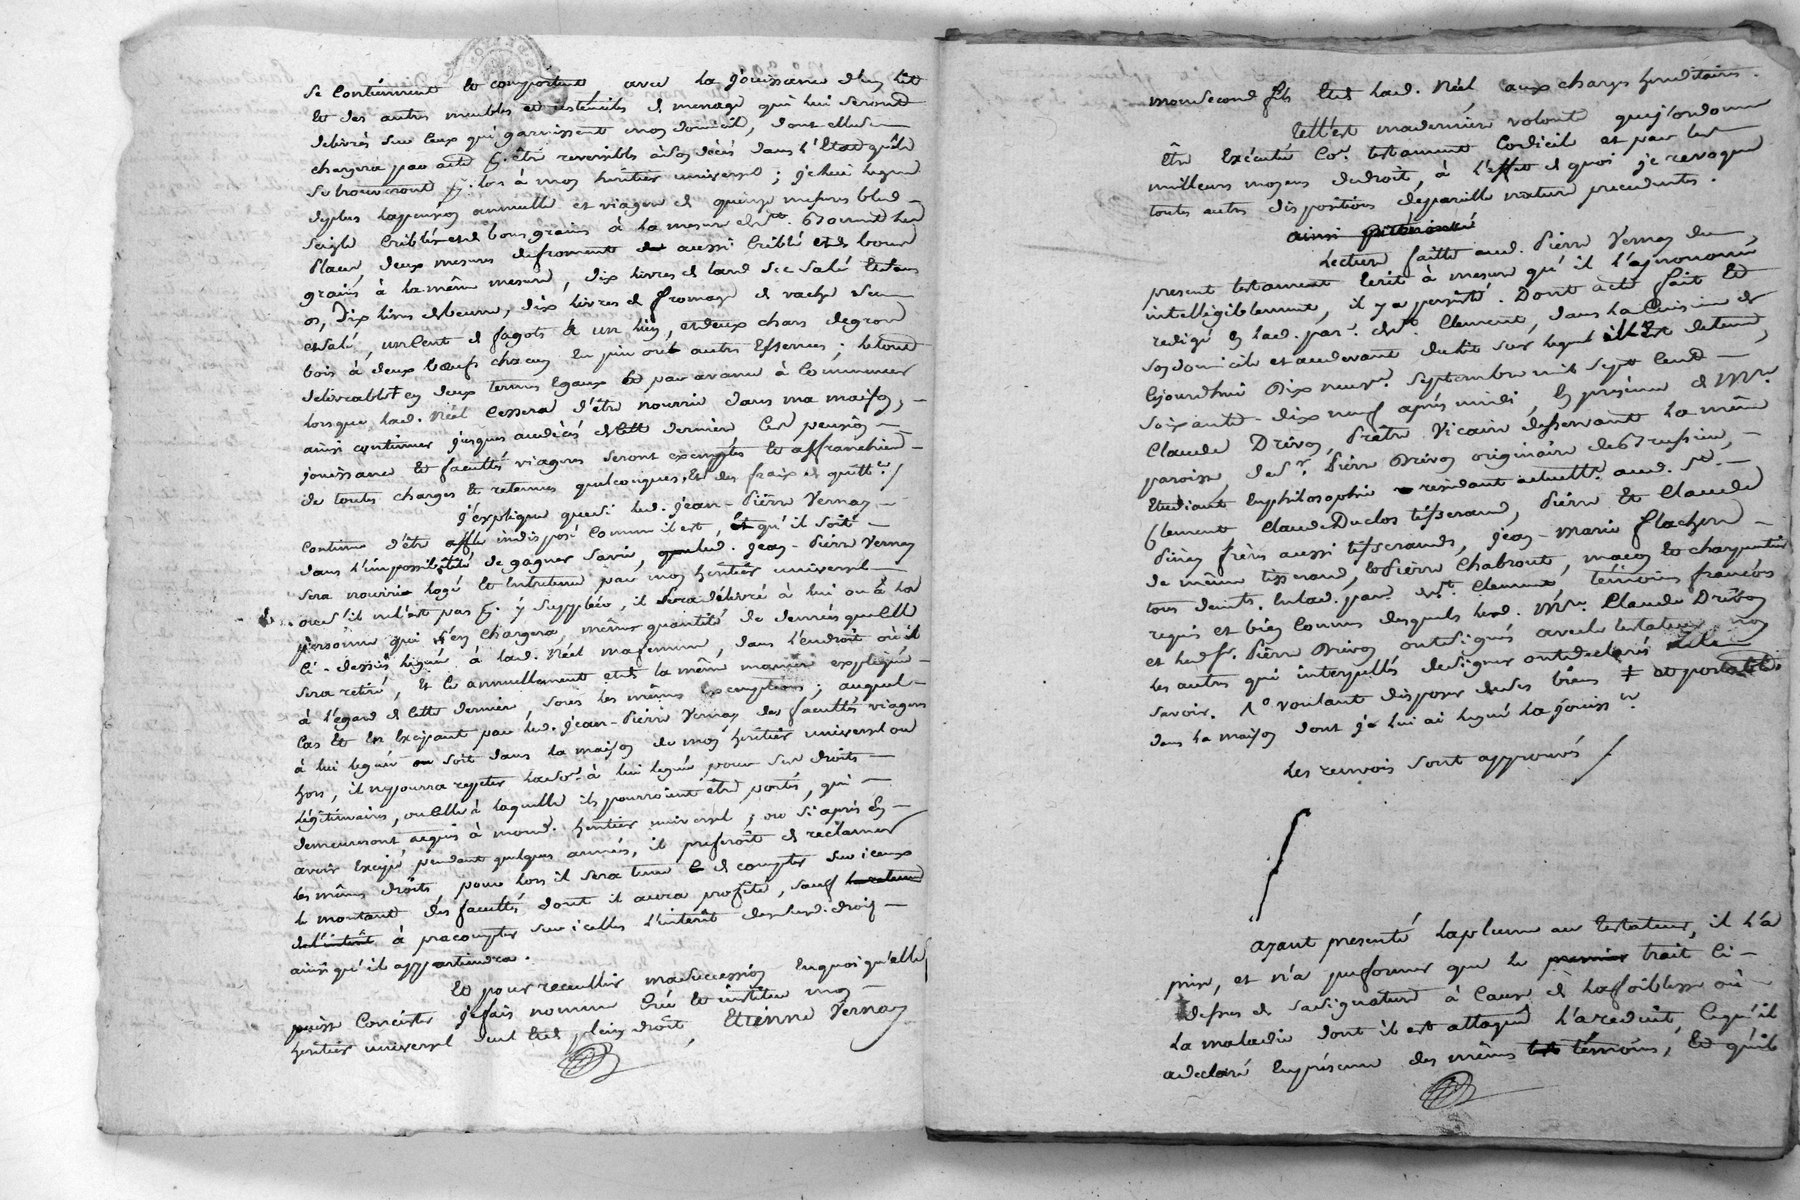 se Contiennent et comportent avec la jouissance d'un lit
et des autres meubles et ustenciles de menage qui lui seront
delivrés sur ceux qui garnissent mon domicil, dont elle se
chargera par acte p.r être reversibles à son décés dans l'Etat qu'ils
se trouveront p.r lors à mon heritier universel ; je lui legue
de plus la pension annuelle et viagere de quinze mesures bled
seigle criblé et de bons grains à la mesure de
place, deux mesures de froment aussi criblé et de bons
grains à la même mesure, dix livres de lard sec salé et sans
os, dix livres de beurre, dix livres de fromage de vache
et salé, un Cent de fagots de un lien, et deux chars de gros
bois à deux bœufs chacun en pin ou autres Essences ; le tout
delivrable en deux termes Egaux et par avance à Commencer
lorsque lad. Néel Cessera d'être nourrie dans ma maison,
ainsi continuer jusques au décés de cette derniere Ces pension
jouissance et facultés viageres seront exemptes et affranchies
de toutes charges et retenues quelconques, et des fraix de quitt.ce /
j'explique que si led. jean-Pierre Vernay
Continue d'être indisposé comme il est, et qu'il soit
dans l'impossibilité de gagner sa vie, led. jean-Pierre Vernay
sera nourri logé et entretenu par mon heritier universel
ou s'il n'est pas p.r y suppléer, il sera délivré à lui ou à la
personne qui s'en chargera, même quantité de denrées que celle
ci-dessus leguée à lad. Néel ma femme, dans l'endroit où il
sera retiré, et ce annuellement et de la même maniere expliquée
à l'égard de cette derniere, sous les mêmes Exemptions ; auquel
Cas et en Excipant par led. jean-Pierre Vernay des facultés viageres
à lui leguées soit dans la maison de mon heritier universel ou
hors, il ne pourra repeter la à lui leguée pour ses droits
légitimaires, ou celle à laquelle ils pourroient être portés, qui
demeureront acquis à mond. heritier universel ; ou si après en
avoir Excipé pendant quelques années, il preferoit de reclamer
les mêmes droits, pour lors il sera tenu de compter sur iceux
le montant des facultés dont il aura profité, sauf la retenue
de l'interêt à precompter sur icelles l'interêt des susd. droits
ainsi qu'il appartiendra.
Et pour recueillir ma succession En quoi qu'elle
puisse Concister je fais nomme Crée et institue mon
heritier universel seul et de plein droit, Etienne Vernay
mon second fils et de lad. Néel, aux charges hereditaires.
Tell'est ma derniere volonté que j'ordonne
Être Exécutée Co.e testament Codicil et par les
meilleurs moyens de droit, à l'effet de quoi je revoque
toutes autres dispositions de pareille nature precedentes.
ainsi prononcé
Lecture faitte aud. Pierre Vernay du
present testament Ecrit à mesure qu'il l'a prononcé
intelligiblement, il y a persisté. Dont acte fait et
redigé en lad. par. de St Clement, dans la Cuisine de
son domicile et au devant du lit sur lequel il est detenu,
cejourd'hui dix neuv.e Septembre mil sept cent
soixante-dix neuf après midi, En presence de M.re
Claude Drévon, Prêtre Vicaire desservant la même
paroisse, de s.r Pierre Drévon originaire de
Etudiant en philosophie residant actuell.t aud. St
Clement Claude Duclos tisserand, Pierre et Claude
freres aussi tisserands, jean-Marie flachon
de même tisserand, et Pierre Chabrout, maçon et charpentier
tous de lad. par. de St Clement témoins françois
requis et bien Connus desquels led. M.re Claude Drévon
et led. s.r Pierre Drévon, ont signés avec le testateur non
les autres qui interpellés de signer ont declaré
savoir. 1° voulant disposer de ses biens ‡ et portable
dans la maison dont je lui ai legué la jouiss.ce
Les renvois sont approuvés /
ayant presenté la plume au testateur, il l'a
prise, et n'a pu former que le premier trait ci-
dessus de sa signature à Cause de la foiblesse où
La maladie dont il est attaqué l'a reduit, Ce qu'il
a declaré En presence des mêmes témoins, et qu'il